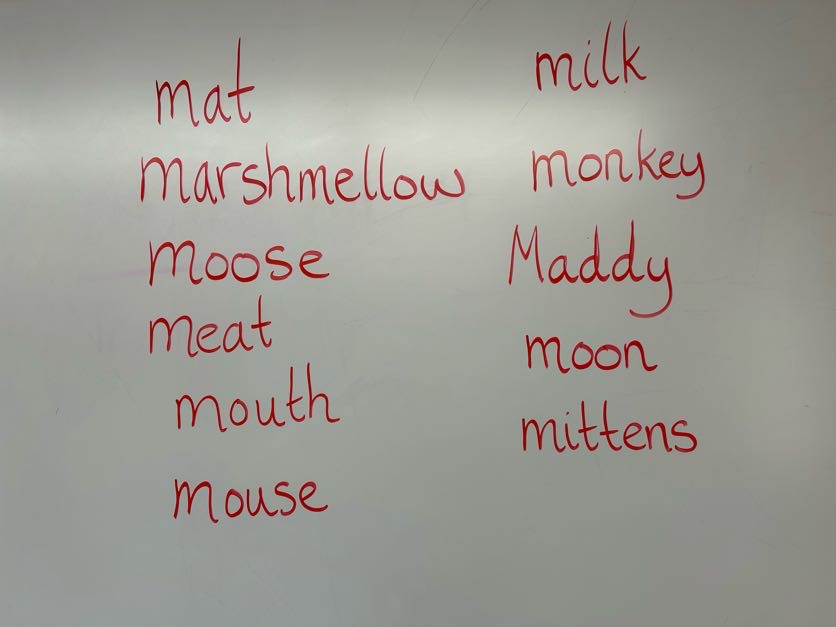 mat
marshmellow
moose
meat
mouth
mouse
milk
monkey
Maddy
moon
mittens